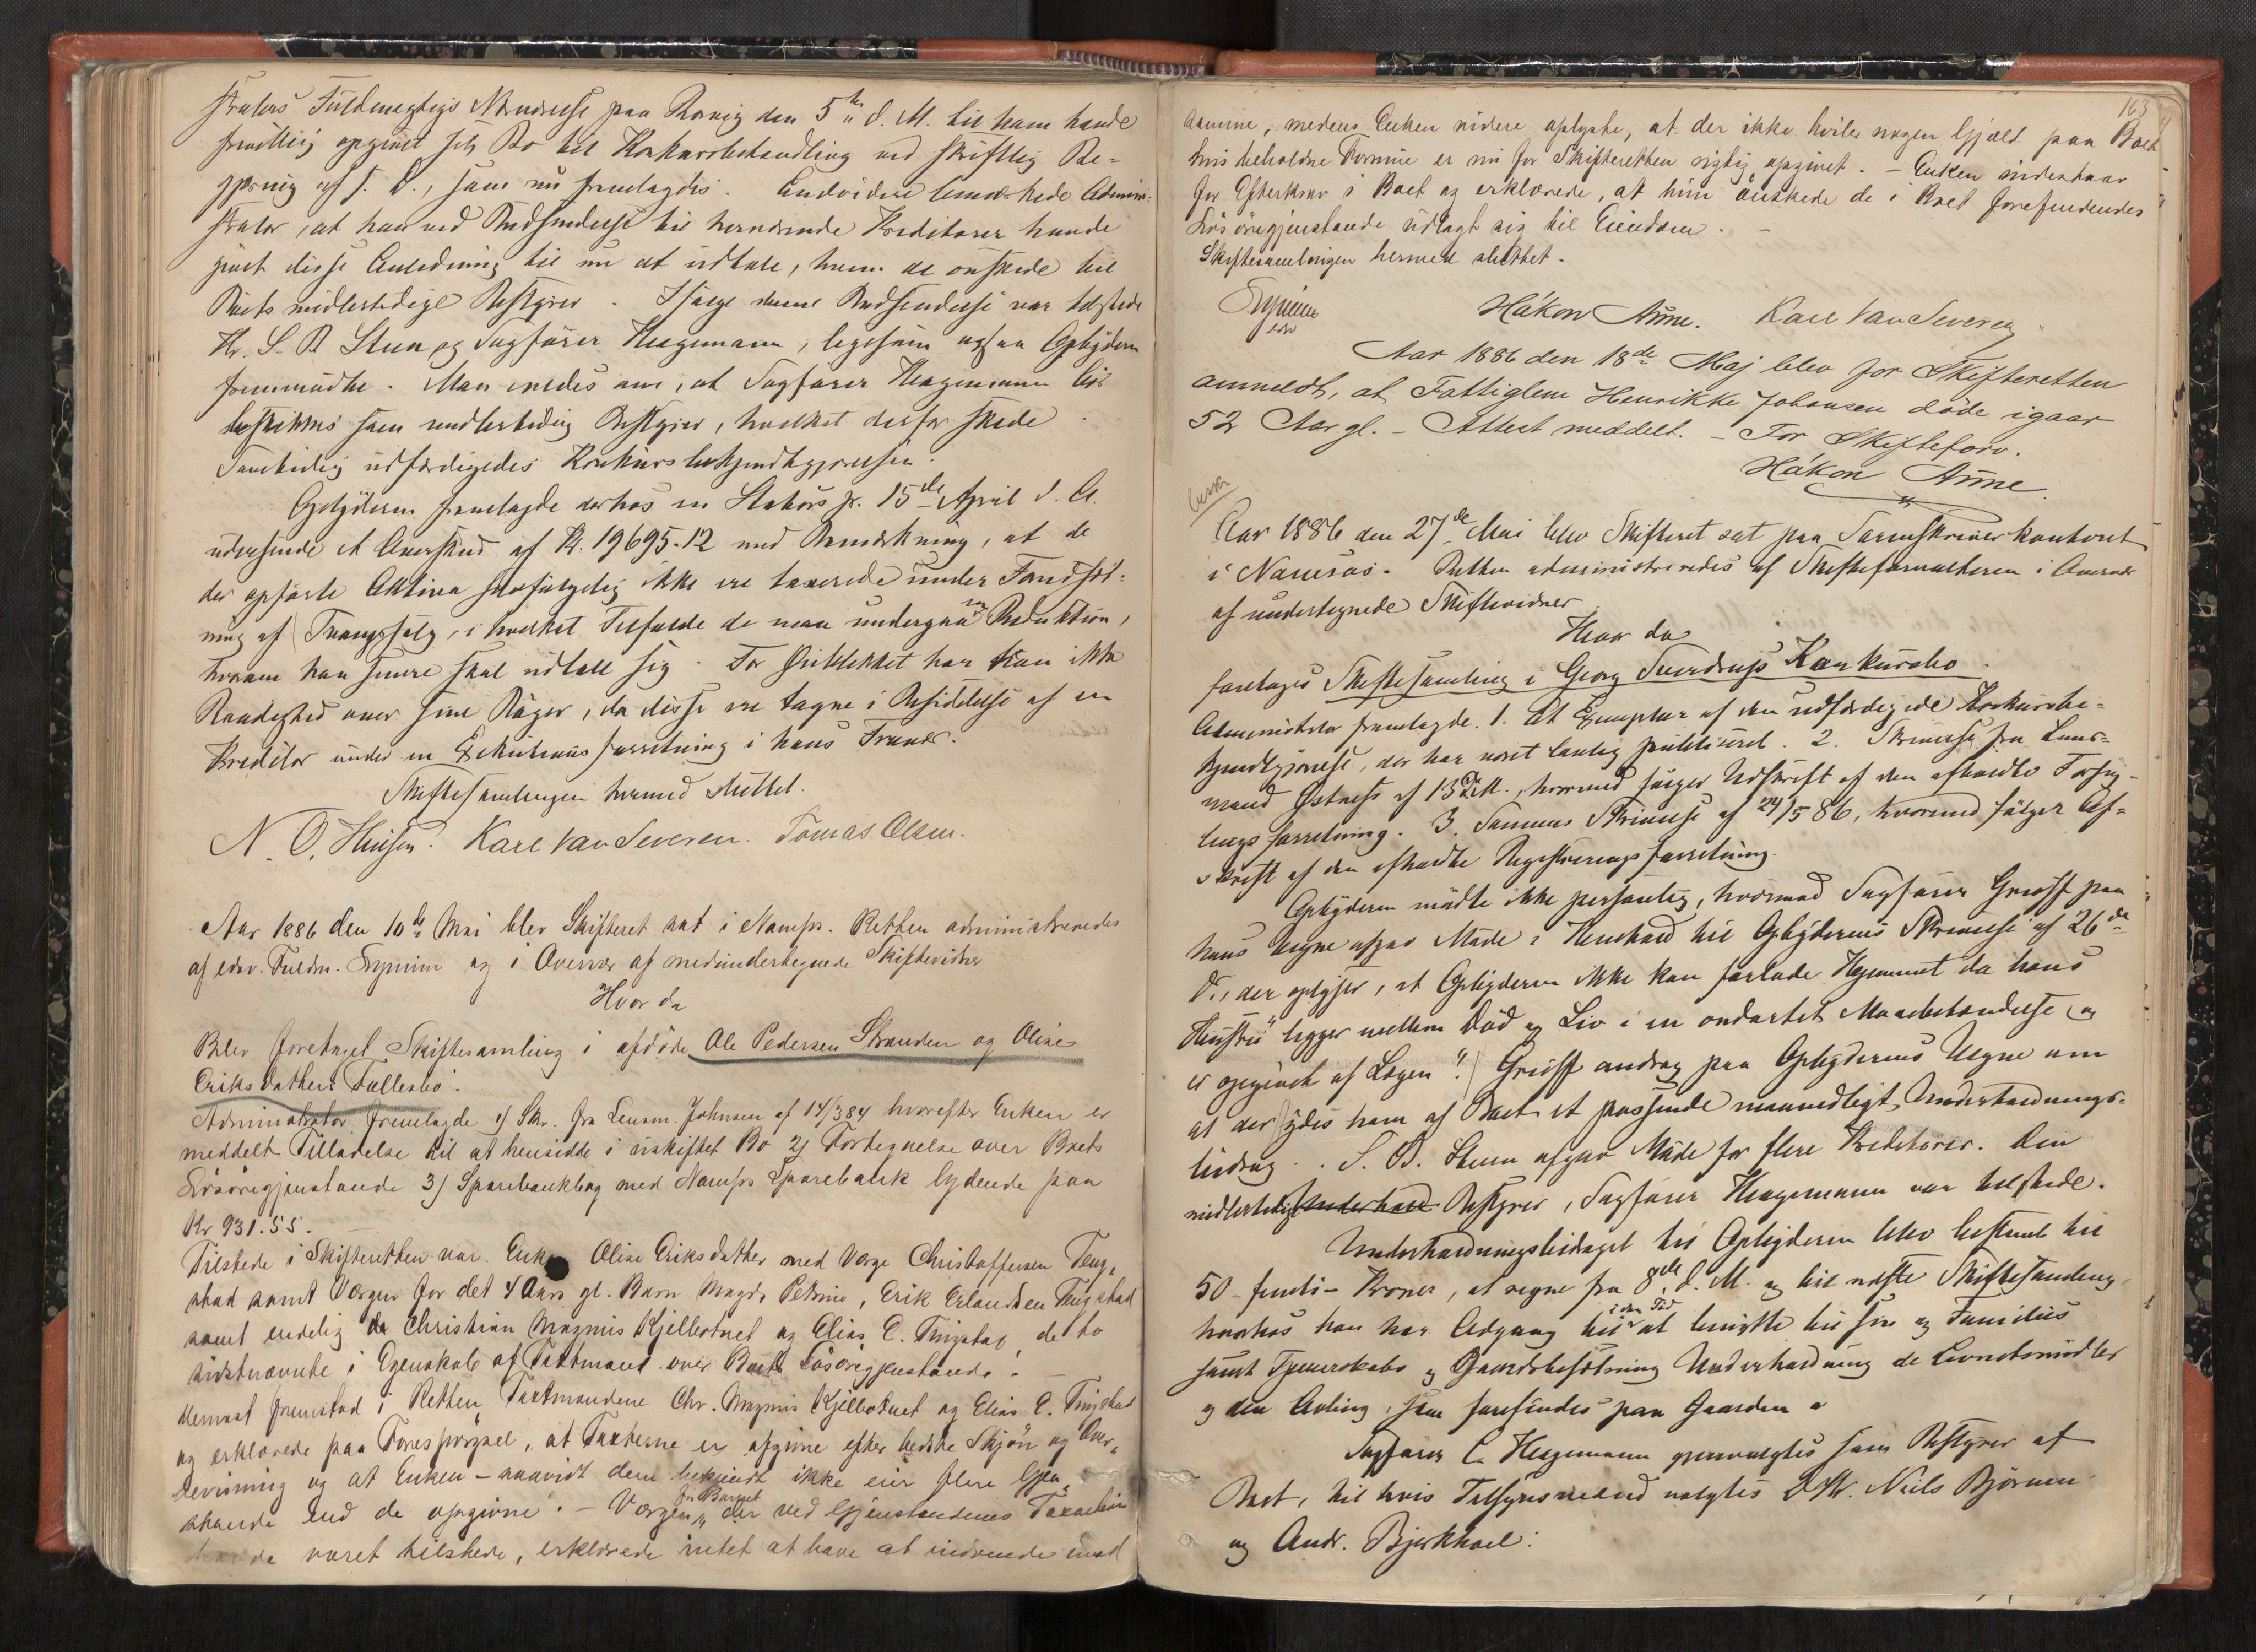 strators Fuldmægtigs Nærværelse paa Rørvig den 5te d. M. til ham havde
frivillig opgivet sit Bo til Konkursbehandling ved skriftlig Be-
gjæring af s. D., som nu fremlagdes. Endvidere bemærkede Admini-
strator, at han ved Rundsendelse til herværende Kreditorer havde
givet disse Anledning til nu at udtale, hvem de ønskede til
Boets midlertidige Bestyrer. Ifølge denne Rundsendelse var tilstede
Hr. S. B. Steen og Sagfører Hagemann, ligesom ogsaa Opbyderen
fremmødte. Man enedes om, at Sagfører Hagemann blev
beskikket som midlertidig Bestyrer, hvilket derfor skede.
Samtidig udfærdigedes Konkursbekjendtgjørelsen.
Opbyderen fremlagde derhos en Status pr. 15de April d. A.
udvisende et Overskud af Kr. 19695.12 med Bemærkning, at de
der opførte Aktiva selvfølgelig ikke ere taxerede under Forudsæt-
ning af Tvangssalg, i hvilket Tilfælde de maa undergaa en Reduktion,
hvorom han senere skal udtale sig. For Øieblikket har han ikke
Raadighed over sine Bøger, da disse ere tagne i Besiddelse af en
Kreditor under en Exekutionsforretning i hans Fravær.
Skiftesamlingen hermed sluttet.
N. O. Hansen. Karl Van Severen. Tomas Olsen.
Aar 1886 den 10de Mai blev Skifteret sat i Namsos. Retten administreredes
af edsv. Fuldm. og i Overvær af medundertegnede Skiftevidner
Hvor da
Blev foretaget Skiftesamling i afdøde Ole Pedersen Stranden og Olise
Eriksdatters Fællesbo.
Administrator fremlagde 1) Skr. fra Lensm. Johnsen af 14/3 84 hvorefter Enken er
meddelt Tilladelse til at hensidde i uskiftet Bo 2) Fortegnelse over Boets
Løsøregjenstande 3) Sparebankbog med Namsos Sparebank lydende paa
Kr 931.55.
Tilstede i Skifteretten var Enken Olise Eriksdatter med Værge Christoffersen Ting,,
stad samt Værgen for det 4 Aars gl. Barn Magda Petrine, Erik Erlandsen Tingstad
samt endelig Christian Magnus Kjelbotnet og Elias E. Tingstad, de to
sidstnævnte i Egenskab af Taxtmænd over Boets Løsøregjenstande. –
Dernæst fremstod i Retten Taxtmændene Chr. Magnus Kjelbotnet og Elias E. Tingstad
og erklærede paa Forespørgsel, at Taxterne er afgivne efter bedste Skjøn og Over,,
bevisning og at Enken – saavidt dem bekjendt ikke eier flere Gjen,,
stande end de opgivne. – Værgen for Barnet, der ved Gjenstandenes Taxation
havde været tilstede, erklærede intet at have at indvende mod
163
samme, medens Enken videre oplyste, at der ikke hviler nogen Gjæld paa Boet
hvis beholdne Formue er nu for Skifteretten rigtig opgivet. – Enken indestaar
for Efterkrav i Boet og erklærede, at hun ønskede de i Boet forefindendes
Løsøregjenstande udlagt sig til Eiendom. –
Skiftesamlingen hermed sluttet.
Håkon Aune. Karl Van Severen
Aar 1886 den 18de Maj blev for Skifteretten
anmeldt, at Fattiglem Henrikke Johansen døde igaar
52 Aar gl. – Attest meddelt. – For Skifteforv.
Håkon Aune.
Aar 1886 den 27de Mai blev Skifteret sat paa Sorenskriverkontoret
i Namsos. Retten administreredes af Skifteforvalteren i Overvær
af undertegnede Skiftevidner
Hvor da
foretoges Skiftesamling i Georg Sverdrups Konkursbo.
Administrator fremlagde. 1. Et Exemplar af den udfærdigede Konkursbe-
kjendtgjørelse, der har været lovlig publiceret. 2. Skrivelse fra Lens-
mand Østnes af 13de d. M., hvormed følger Udskrift af den afholdte Forseg-
lingsforretning. 3. Sammes Skrivelse af 24/5 86, hvormed følger Af-
skrift af den afholdte Registreringsforretning.
Opbyderen mødte ikke personlig, hvorimod Sagfører Grüff paa
hans Vegne afgav Møde i Henhold til Opbyderens Skrivelse af 26de
ds., der oplyser, at Opbyderen ikke kan forlade Hjemmet da hans
Hustru "ligger mellem Død og Liv i en ondartet Mavebetændelse, og
er opgivet af Lægen". Grüff androg paa Opbyderens Vegne om
at der ydes ham af Boet et passende maanedligt Underholdnings-
bidrag. S. B. Steen afgav Møde for flere Kreditorer. Den
midlertidige Bestyrer, Sagfører Hagemann var tilstede.
Underholdningsbidraget til Opbyderen blev bestemt til
50 – femti – Kroner, at regne fra 8de d. M. og til næste Skiftesamling,
hvorhos han har Adgang til i den Tid at benytte til sin og Families
samt Tjenerskabs og Gaardsbesætning Underholdning de Livnetsmidler
og den Avling, som forefindes paa Gaarden.
Sagfører C. Hagemann gjenvalgtes som Bestyrer af
Boet, til hvis Tilsynsmænd valgtes DHr. Niels Bjørum
og Andr. Bjerkhoel.